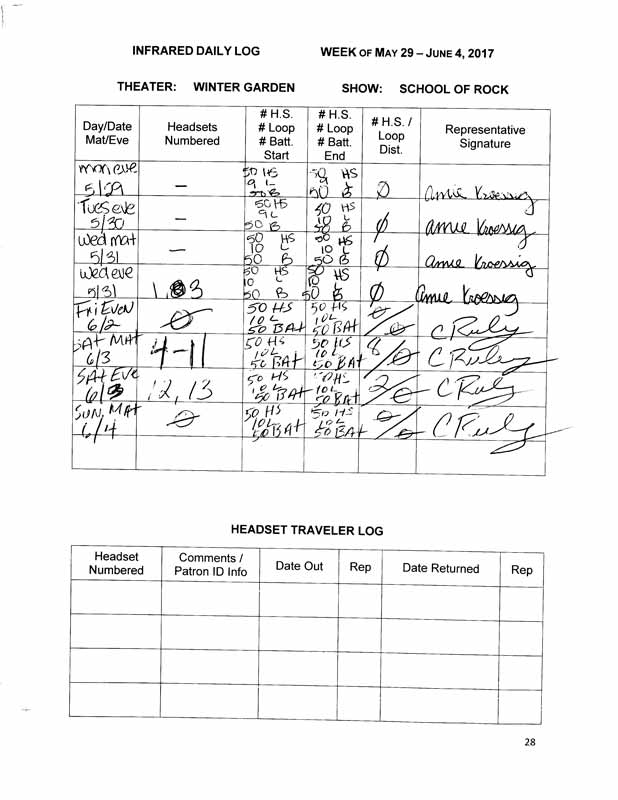 INFRARED DAILY LOG WEEK OF MAY 29 – JUNE 4, 2017
THEATER: WINTER GARDEN SHOW: SCHOOL OF ROCK
Day/Date Mat/Eve Headsets Numbered # H.S. # Loop # Batt. Start # H.S. # Loop # Batt. End # H.S. / Loop Dist. Representative Signature
mon eve 50 HS 50 HS
9 L 9
5/29 — 50 B 50 B 0 Amie Kroessig
Tues eve 50 HS 50 HS
9 L 10 L
5/30 — 50 B 50 B Ø Amie Kroessig
Wed mat 50 HS 50 HS
10 L 10 L
5/31 — 50 B 50 B Ø Amie Kroessig
Wed eve 50 HS 50 HS
10 L 10 L
5/31 50 B 50 B Ø Amie Kroessig
Fri Even 50 HS 50 HS
10 L 10 L
6/2 Ø 50 BAt 50 BAt Ø/Ø C Ruly
SAt MAt 50 HS 50 HS
10 L 10 L
6/3 4-11 50 BAt 50 BAt 8/Ø C Ruley
SAt Eve 50 HS 50 HS
10 L 10 L
6/3 12, 13 50 BAt 50 BAt 2/Ø C Ruly
SUN, MAt 50 HS 50 HS
10 L 10 L
6/4 Ø 50 BAt 50 BAt Ø/Ø C Ruly
HEADSET TRAVELER LOG
Headset Numbered Comments / Patron ID Info Date Out Rep Date Returned Rep
28